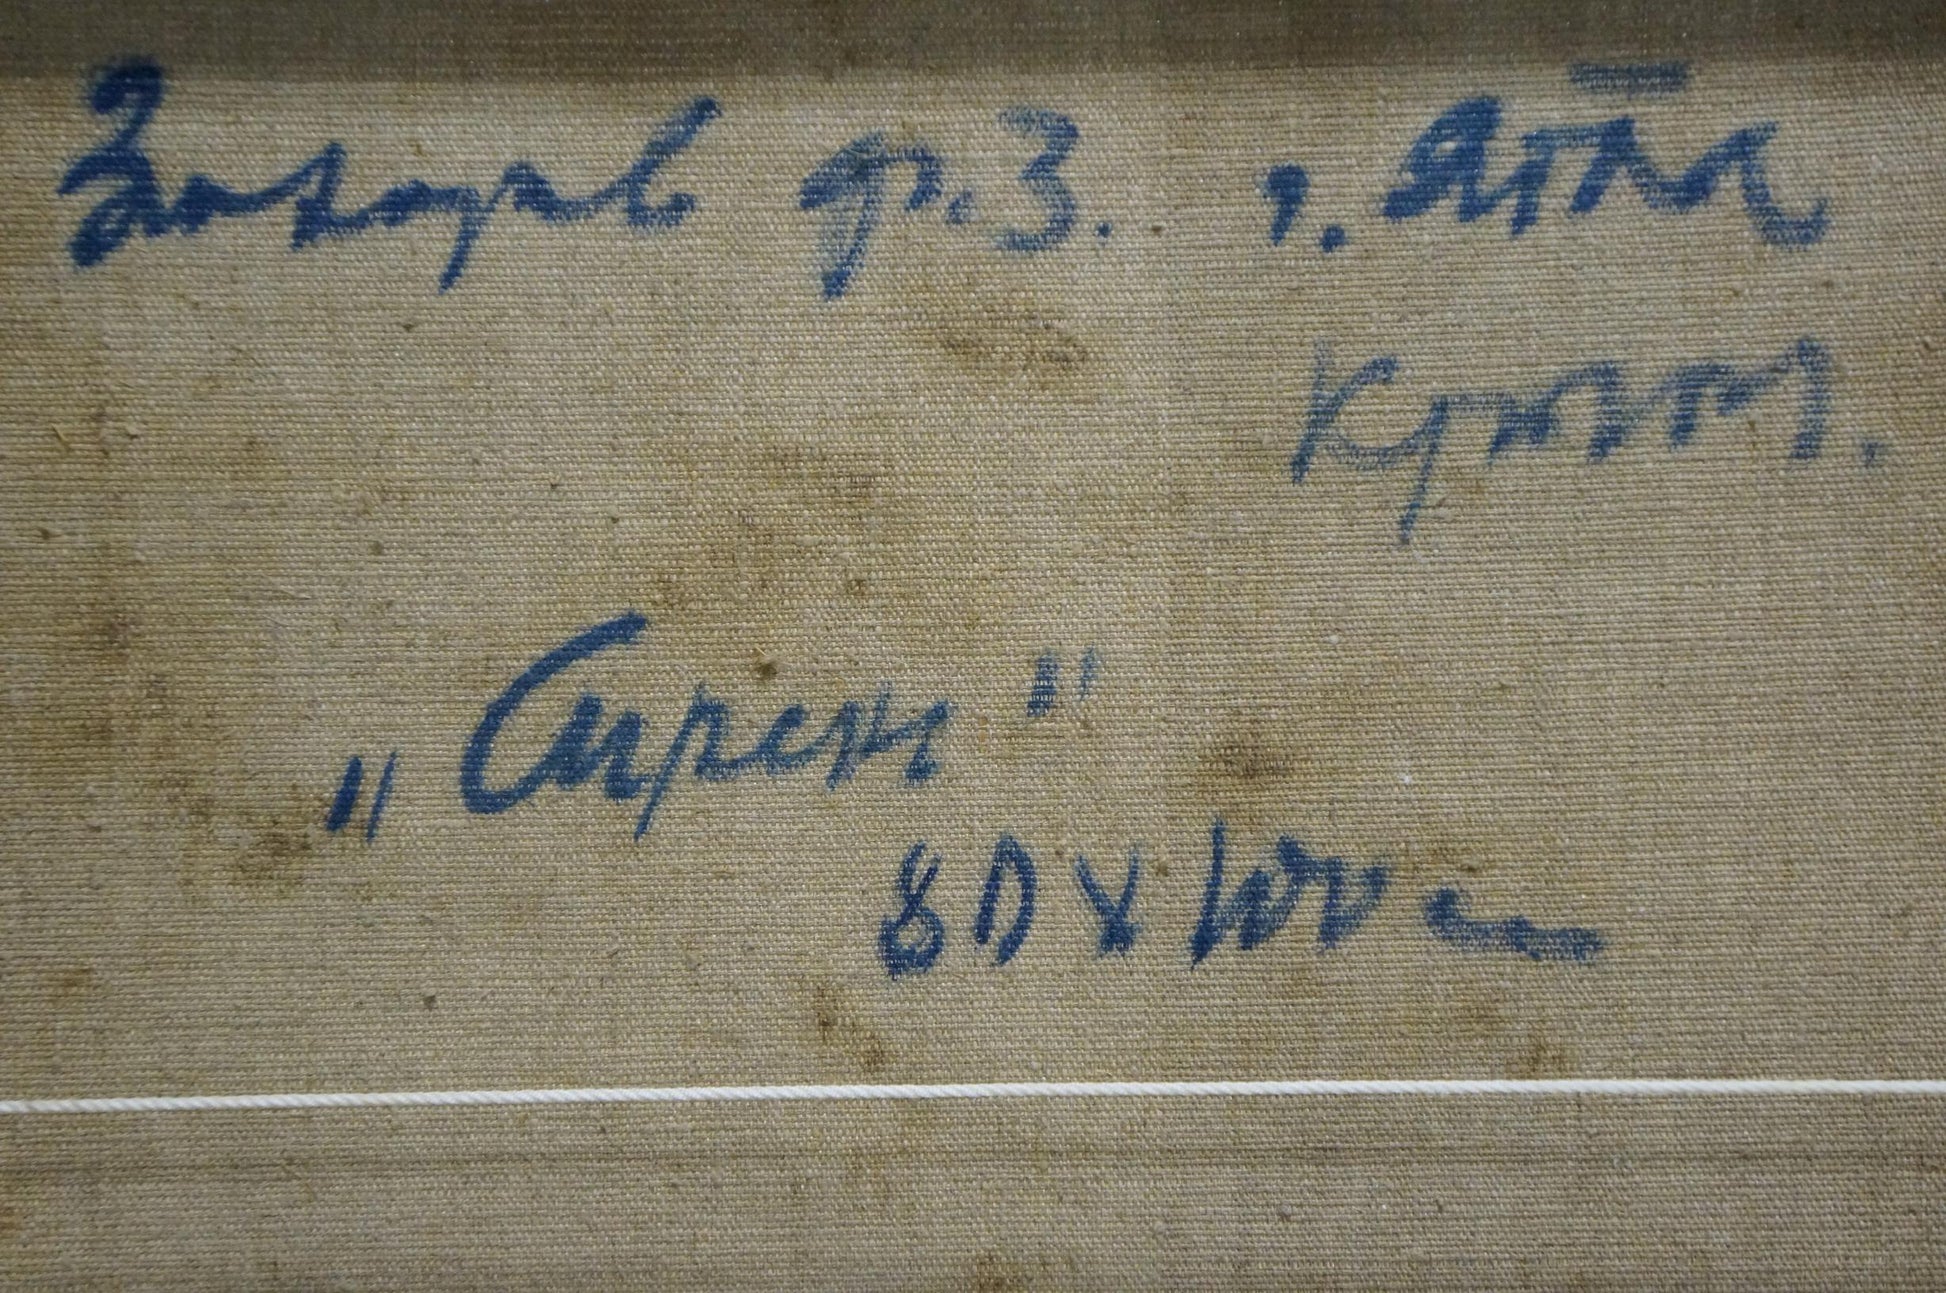 Захаров Ф.З. г. Ялта
Крым.
„Сирень"
80 х 100 см